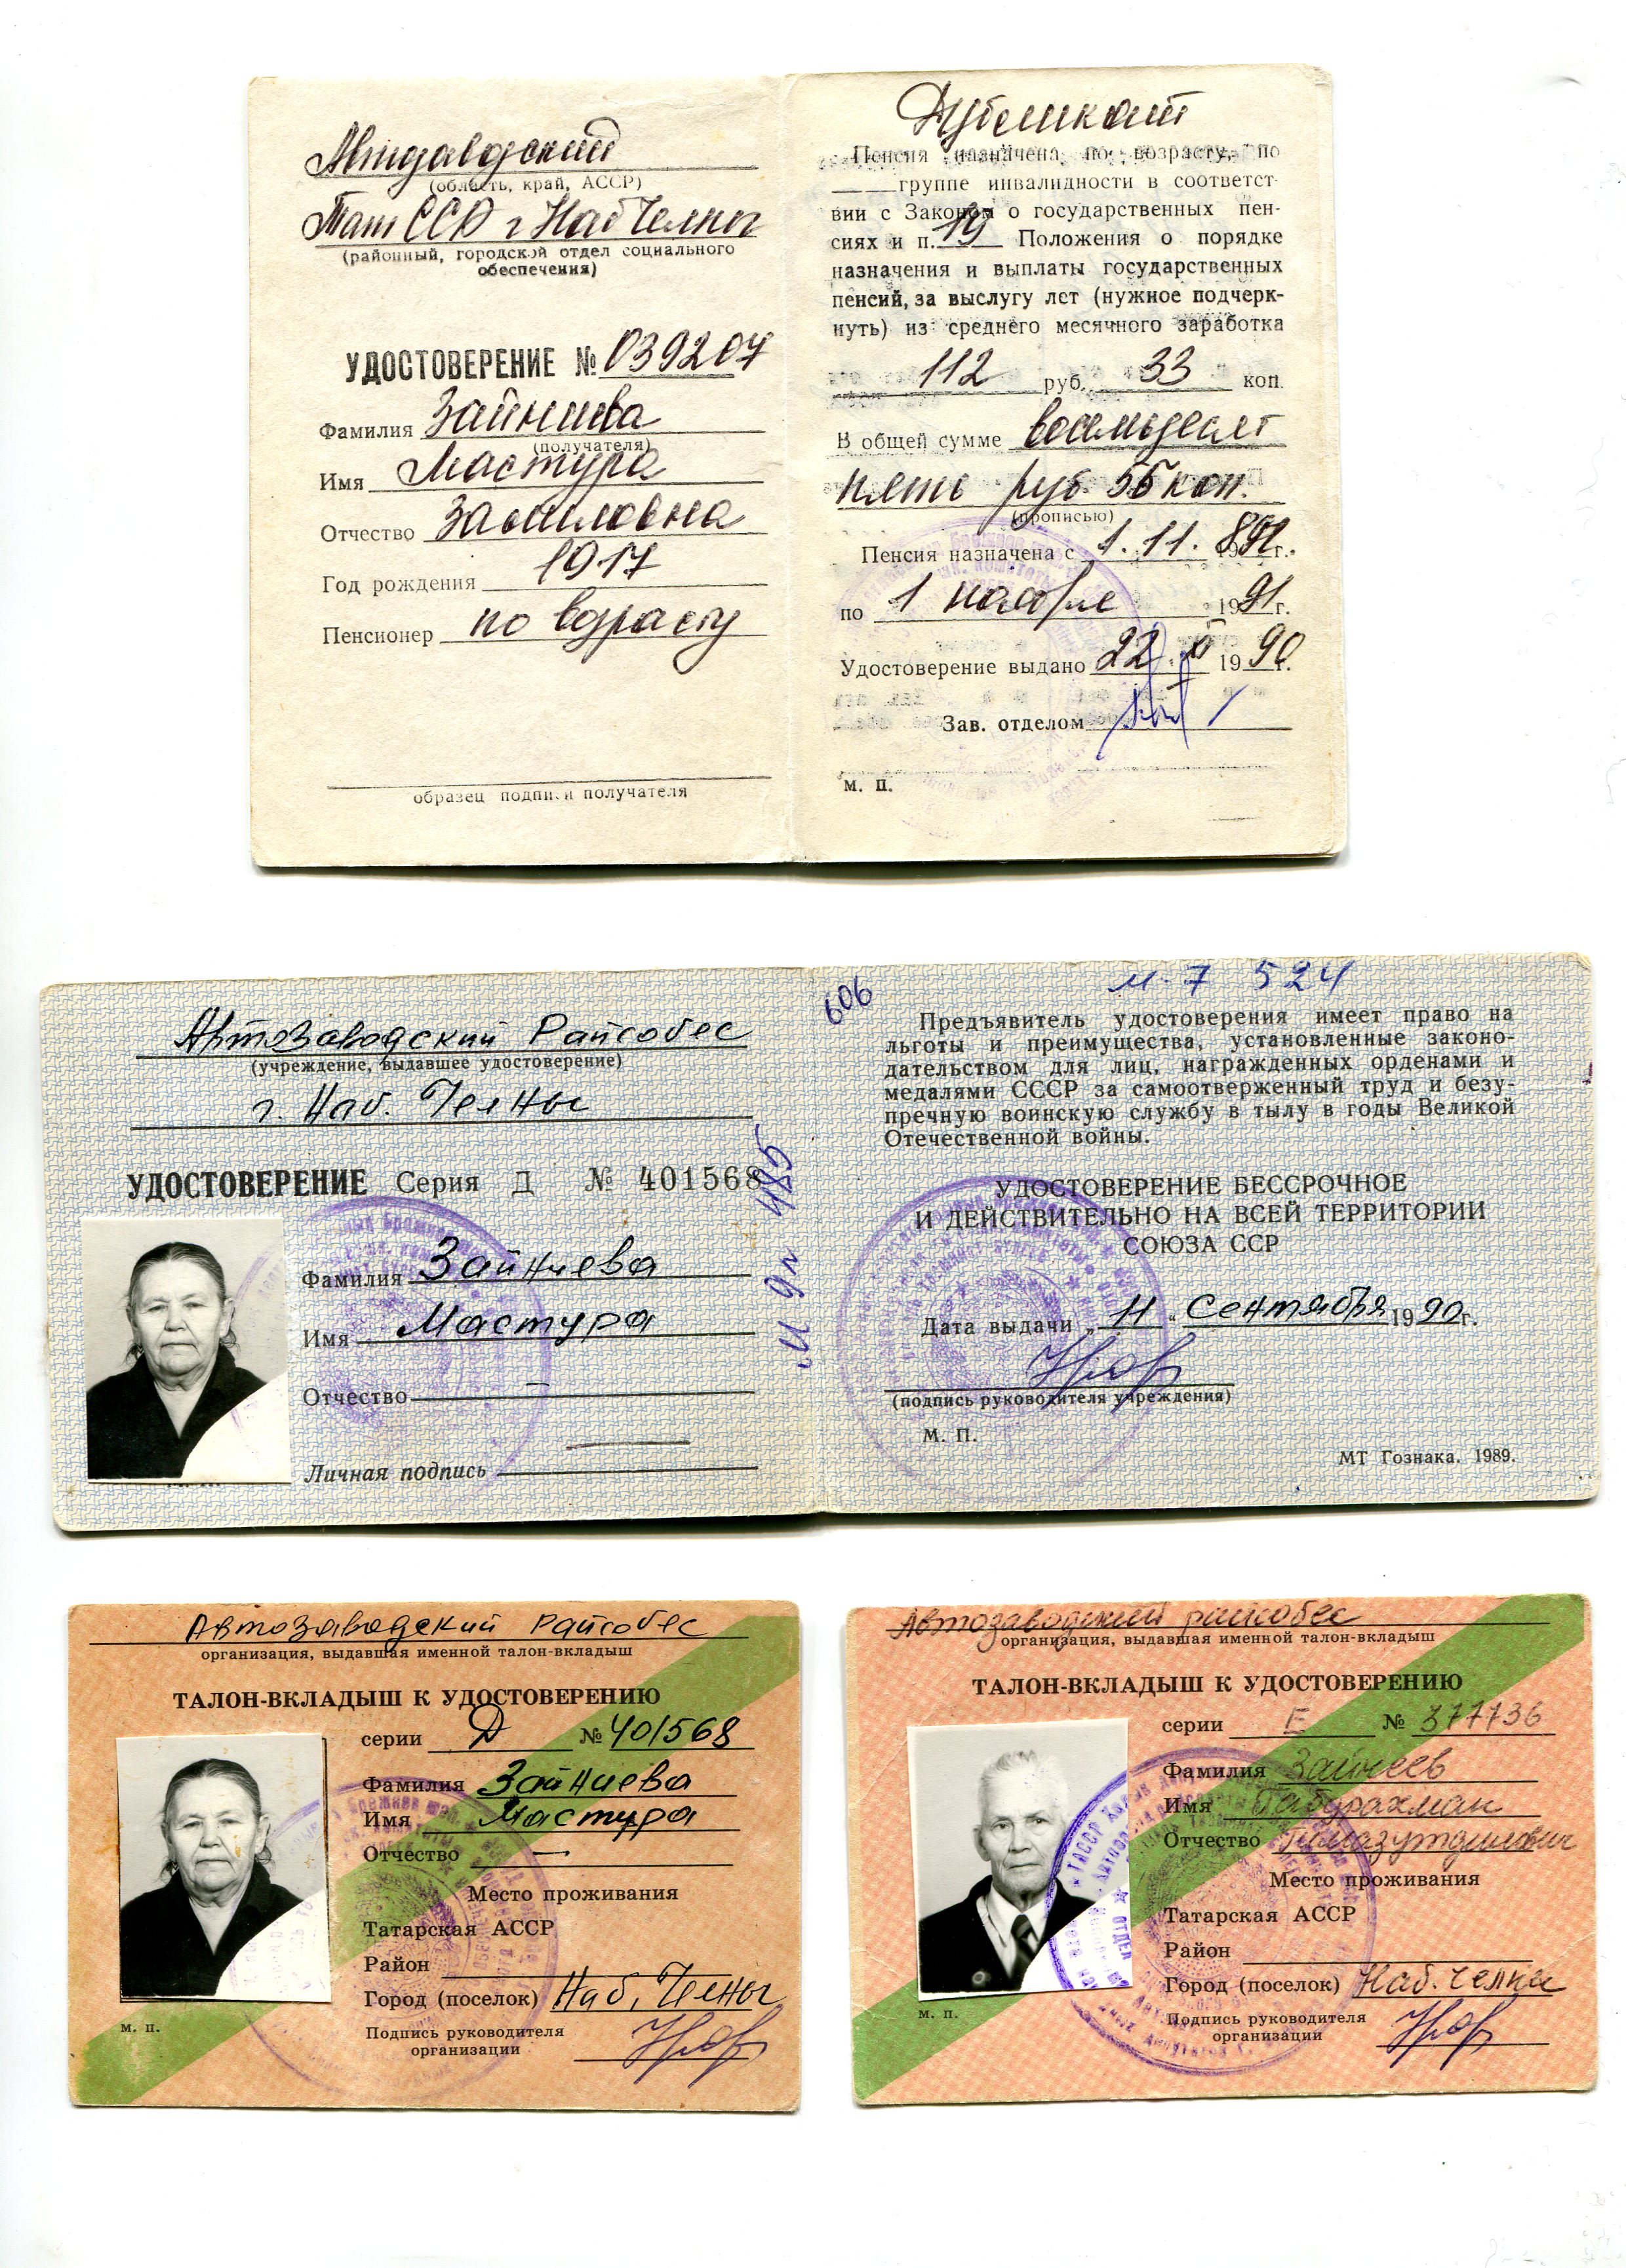 Автозаводский
(область, край, АССР)
Тат ССР г Наб Челны
(районный, городской отдел социального
обеспечения)
УДОСТОВЕРЕНИЕ № 039207
Фамилия Зайниева
(получателя)
Имя Мастура
Отчество
Год рождения 1917
Пенсионер по возрасту
образец подписи получателя
Дубликат
Пенсия назначена по возрасту, по
группе инвалидности в соответст-
вии с Законом о государственных пен-
сиях и п. 19 Положения о порядке
назначения и выплаты государственных
пенсий, за выслугу лет (нужное подчерк-
нуть) из среднего месячного заработка
112 руб. 33 коп.
В общей сумме восемьдесят
пять руб 56 коп.
(прописью)
Пенсия назначена с 1. 11. г.
по 1 ноября 1991 г.
Удостоверение выдано 22. XI 1990 г.
Зав. отделом
М. П.
Автозаводский Райсобес
(учреждение, выдавшее удостоверение)
г. Наб. Челны
УДОСТОВЕРЕНИЕ Серия Д № 401568
Фамилия Зайниева
Имя Мастура
Отчество —
Личная подпись
606
М-7 524
Предъявитель удостоверения имеет право на
льготы и преимущества, установленные законо-
дательством для лиц, награжденных орденами и
медалями СССР за самоотверженный труд и безу-
пречную воинскую службу в тылу в годы Великой
Отечественной войны.
УДОСТОВЕРЕНИЕ БЕССРОЧНОЕ
И ДЕЙСТВИТЕЛЬНО НА ВСЕЙ ТЕРРИТОРИИ
СОЮЗА ССР
Дата выдачи „11“ Сентября 1990 г.
(подпись руководителя учреждения)
М. П.
МТ Гознака. 1989.
Автозаводский Райсобес
организация, выдавшая именной талон-вкладыш
ТАЛОН-ВКЛАДЫШ К УДОСТОВЕРЕНИЮ
серии Д № 401568
Фамилия Зайниева
Имя Мастура
Отчество —
Место проживания
Татарская АССР
Район
Город (поселок) Наб. Челны
м. п.
Подпись руководителя
организации
Автозаводский райсобес
организация, выдавшая именной талон-вкладыш
ТАЛОН-ВКЛАДЫШ К УДОСТОВЕРЕНИЮ
серии Е № 377736
Фамилия Зайнеев
Имя Габдрахман
Отчество
Место проживания
Татарская АССР
Район
Город (поселок) Наб. Челны
м. п.
Подпись руководителя
организации